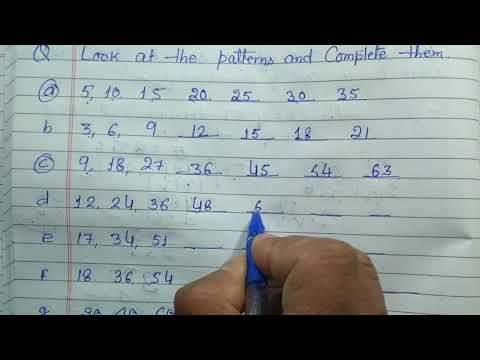 Q Look at the patterns and Complete them.
(a) 5, 10, 15 20 25 30 35
b 3, 6, 9 12 15 18 21
(c) 9, 18, 27 36 45 54 63
d 12, 24, 36 48 6
e 17, 34, 51
f 18, 36, 54